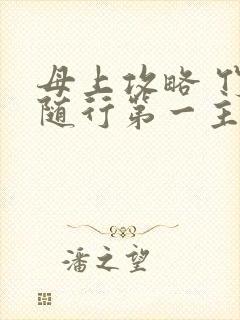 母上攻略 
随行第一主
潘之望